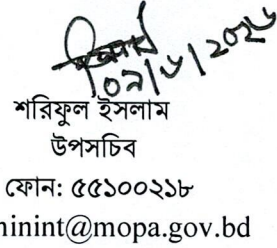 ০৯/৬/২০২৬
শরিফুল ইসলাম
উপসচিব
ফোন: ৫৫১০০২১৮
ninint@mopa.gov.bd